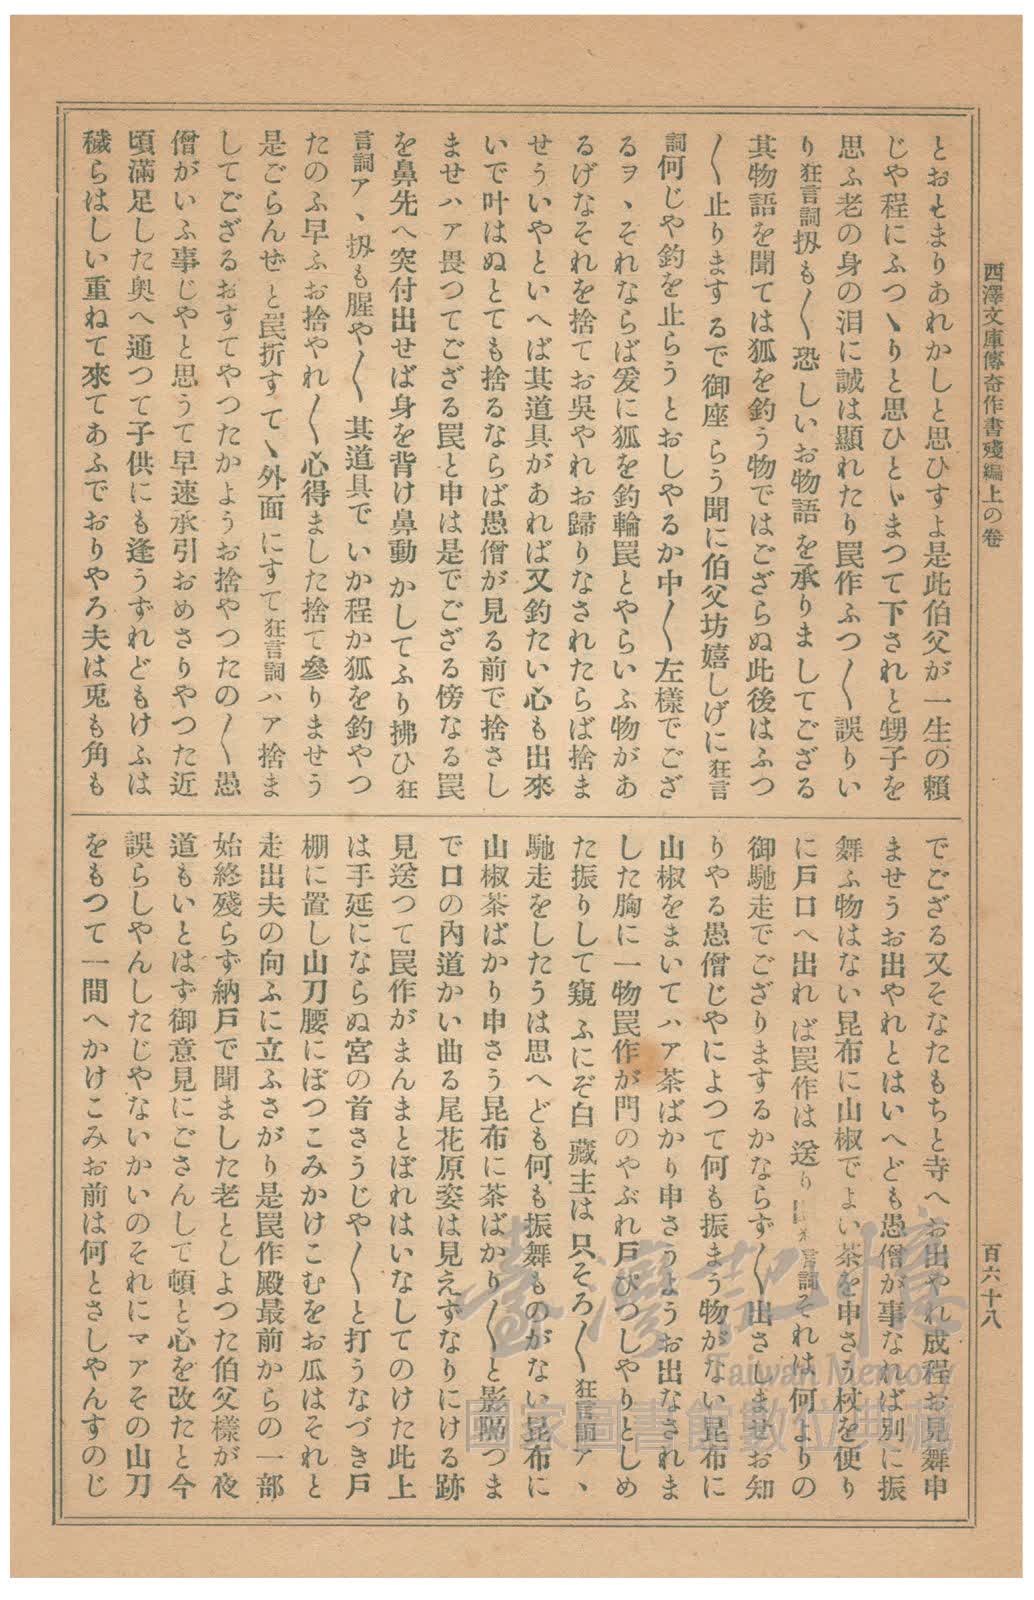 西澤文庫傳奇作書殘編上の卷
とおとまりあれかしと思ひすよ是此伯父が一生の賴
じや程にふつヽりと思ひとヾまつて下されと甥子を
思ふ老の身の泪に誠は顯れたり罠作ふつ〱誤りい
り狂言詞扨も〱恐しいお物語を承りましてござる
其物語を聞ては狐を釣う物ではござらぬ此後はふつ
〱止りまするで御座らう聞に伯父坊嬉しげに狂言
詞何じや釣を止らうとおしやるか中〱左樣でござ
るヲヽそれならば爰に狐を釣輪罠とやらいふ物があ
るげなそれを捨てお吳やれお歸りなされたらば捨ま
せういやといへば其道具があれば又釣たい心も出來
いで叶はぬとても捨るならば愚僧が見る前で捨さし
ませハア畏つてござる罠と申は是でござる傍なる罠
を鼻先へ突付出せば身を背け鼻動かしてふり拂ひ狂
言詞アヽ扨も腥や〱其道具でいか程か狐を釣やつ
たのふ早ふお捨やれ〱心得ました捨て參りませう
是ごらんぜと罠折すてヽ外面にすて狂言詞ハア捨ま
してござるおすてやつたかようお捨やつたの〱愚
僧がいふ事じやと思うて早速承引おめさりやつた近
頃滿足した奥へ通つて子供にも逢うずれどもけふは
穢らはしい重ねて來てあふでおりやろ夫は兎も角も
でござる又そなたもちと寺へお出やれ成程お見舞申
ませうお出やれとはいへども愚僧が事なれば別に振
舞ふ物はない昆布に山椒でよい茶を申さう杖を便り
に戸口へ出れば罠作は送り言詞それは何よりの
御馳走でござりまするかならず〱出さしませお知
りやる愚僧じやによつて何も振まう物がない昆布に
山椒をまいてハア茶ばかり申さうようお出なされま
した胸に一物罠作が門のやぶれ戸ぴつしやりとしめ
た振りして窺ふにぞ白藏主は只そろ〱狂言詞アヽ
馳走をしたうは思へども何も振舞ものがない昆布に
山椒茶ばかり申さう昆布に茶ばかり〱と影隔つま
で口の內道かい曲る尾花原姿は見えずなりにける跡
見送つて罠作がまんまとぼれはいなしてのけた此上
は手延にならぬ宮の首さうじや〱と打うなづき戸
棚に置し山刀腰にぼつこみかけこむをお瓜はそれと
走出夫の向ふに立ふさがり是罠作殿最前からの一部
始終殘らず納戸で聞ました老としよつた伯父樣が夜
道もいとはず御意見にごさんして頓と心を改たと今
誤らしやんしたじやないかいのそれにマアその山刀
をもつて一間へかけこみお前は何とさしやんすのじ
百六十八
臺灣記憶
Taiwan Memory
國家圖書館數位典藏